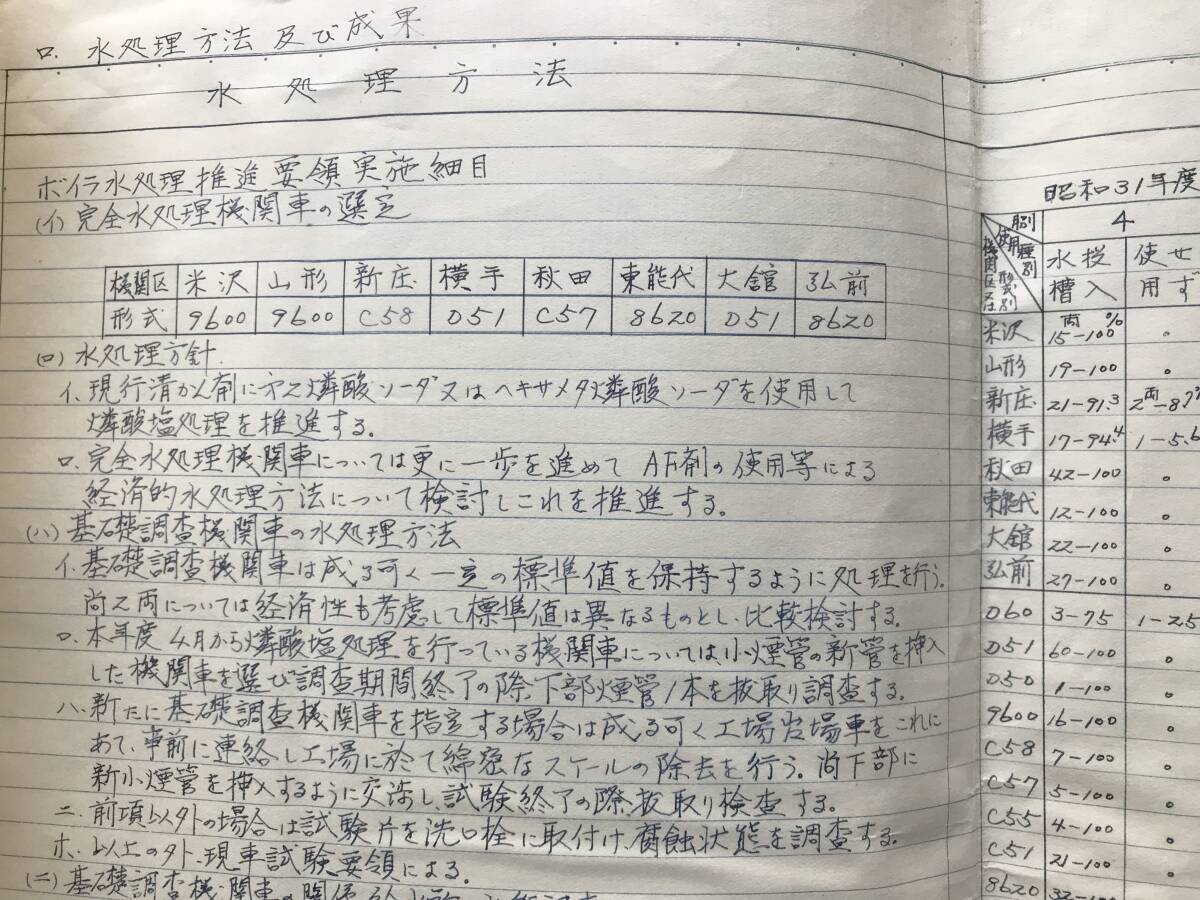 ロ. 水処理方法及び成果
水処理方法
ボイラ水処理推進要領実施細目
(イ) 完全水処理機関車の選定
機関区 米沢 山形 新庄 横手 秋田 東能代 大舘 弘前
形式 9600 9600 C58 D51 C57 8620 D51 8620
(ロ) 水処理方針
イ. 現行清かん剤に第2燐酸ソーダ又はヘキサメタ燐酸ソーダを使用して
燐酸塩処理を推進する。
ロ. 完全水処理機関車については更に一歩を進めて AF剤の使用等による
経済的水処理方法について検討しこれを推進する。
(ハ) 基礎調査機関車の水処理方法
イ. 基礎調査機関車は成る可く一定の標準値を保持するように処理を行う。
尚2両については経済性も考慮して標準値は異なるものとし、比較検討する。
ロ. 本年度4月から燐酸塩処理を行っている機関車については、小煙管の新管を挿入
した機関車を選び調査期間終了の際、下部煙管1本を抜取り調査する。
ハ. 新たに基礎調査機関車を指定する場合は成る可く工場出場車をこれに
あて、事前に連絡し工場に於て綿密なスケールの除去を行う。尚下部に
新小煙管を挿入するように交渉し、試験終了の際、抜取り検査する。
ニ. 前項以外の場合は試験片を洗口栓に取付け、腐蝕状態を調査する。
ホ. 以上の外、現車試験要領による。
(ニ) 基礎調査機関車の関係
昭和31年度
月別 使用種別 機関区又は形式別
4
水槽投入 使用せず
米沢 15両-100% 。
山形 19-100 。
新庄 21-91.3 2両-8.7
横手 17-94.4 1-5.6
秋田 42-100 。
東能代 12-100 。
大舘 22-100 。
弘前 27-100 。
D60 3-75 1-25
D51 60-100 。
D50 1-100 。
9600 16-100 。
C58 7-100 。
C57 5-100 。
C55 4-100 。
C51 21-100 。
8620